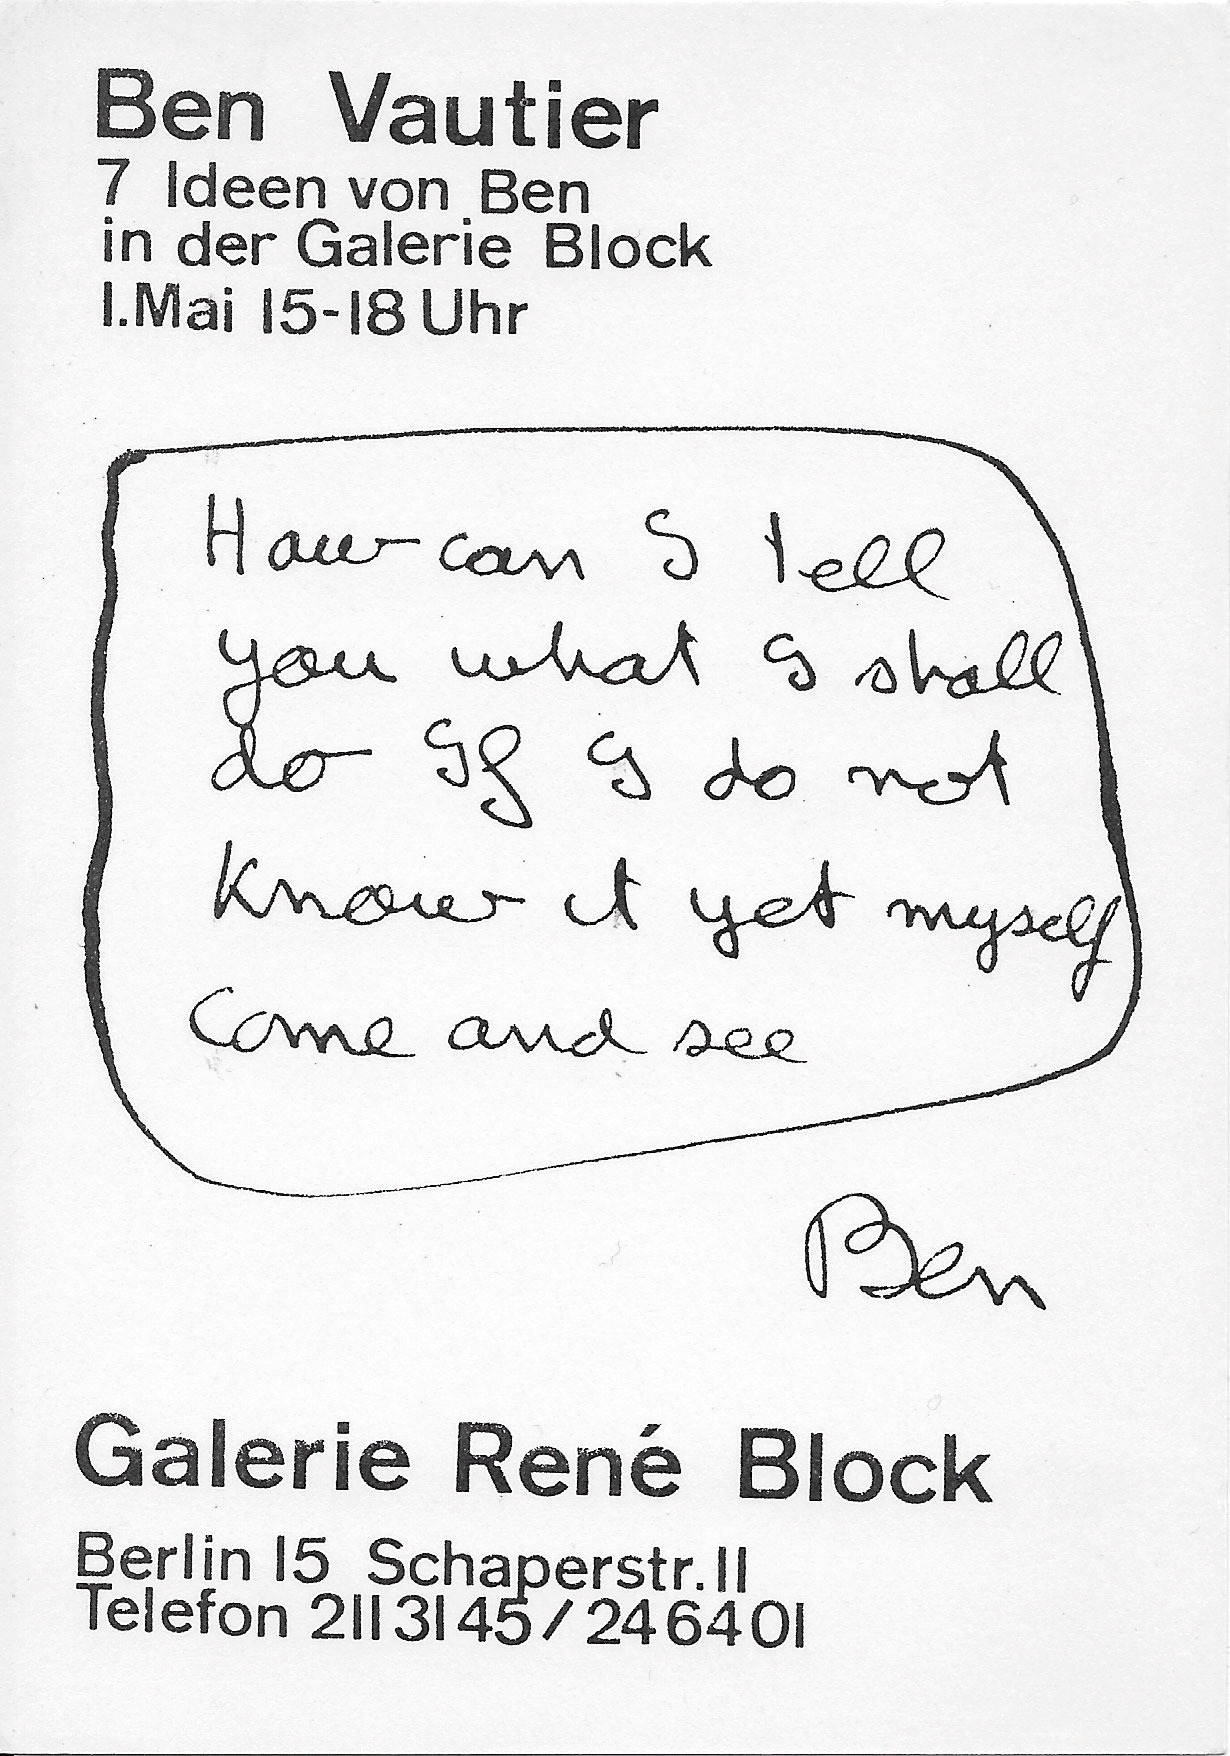 Ben Vautier
7 Ideen von Ben
in der Galerie Block
1.Mai 15-18 Uhr
How can I tell
you what I shall
do If I do not
know it yet myself
Come and see
Ben
Galerie René Block
Berlin 15 Schaperstr.11
Telefon 2113145/246401